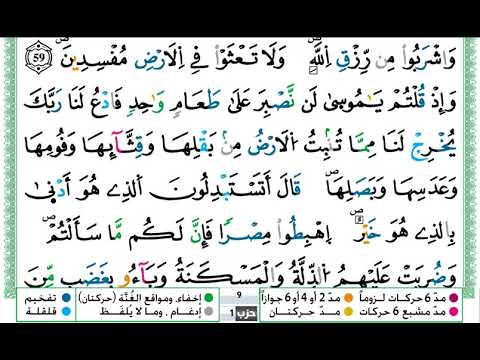 وَاشْرَبُوا مِن رِّزْقِ اِللَّهِ ۖ وَلَا تَعْثَوْا فِے اِلَارْضِ مُفْسِدِينَ ۖ 59
وَإِذْ قُلْتُمْ يَٰمُوسَىٰ لَن نَّصْبِرَ عَلَىٰ طَعَامٖ وَٰحِدٖ فَادْعُ لَنَا رَبَّكَ
يُخْرِجْ لَنَا مِمَّا تُنۢبِتُ اُلَارْضُ مِنۢ بَقْلِهَا وَقِثَّآئِهَا وَفُومِهَا
وَعَدَسِهَا وَبَصَلِهَا ۖ قَالَ أَتَسْتَبْدِلُونَ اَلذِے هُوَ أَدْنَىٰ
بِالذِے هُوَ خَيْرٌ ۖ اِهْبِطُوا مِصْراٗ فَإِنَّ لَكُم مَّا سَأَلْتُمْ ۖ
وَضُرِبَتْ عَلَيْهِمُ اُلذِّلَّةُ وَالْمَسْكَنَةُ وَبَآءُو بِغَضَبٖ مِّنَ
مدّ 6 حركات لزوماً مدّ 2 أو 4 أو 6 جوازاً 9 إخفاء ومواقع الغُنَّة (حركتان) تفخيم
مدّ مشبع 6 حركات مدّ حركتان حزب 1 إدغام ، وما لا يُلفَظ قلقلة